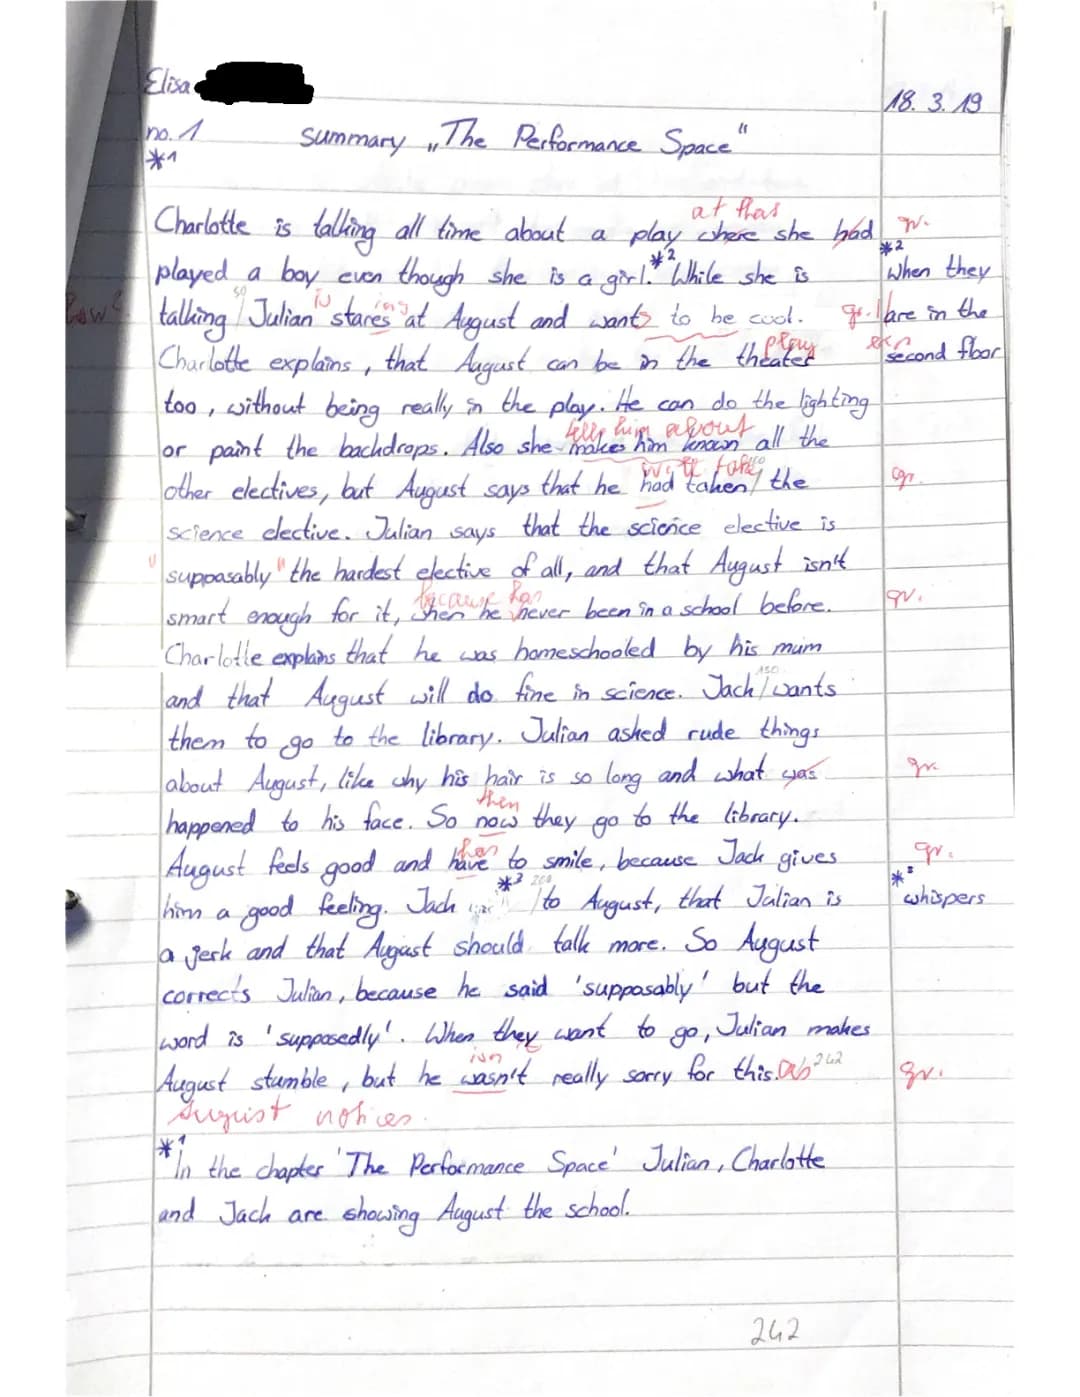 Elisa
18. 3. 19
no. 1 summary „The Performance Space"
*1
at that
Charlotte is talking all time about a play where she had gr.
*2 *2
played a boy even though she is a girl. While she is When they
50 is ing
talking / Julian stares at August and wants to be cool. gr. are in the
play
Charlotte explains, that August can be in the theater second floor
too, without being really in the play. He can do the lighting
tells him about
or paint the backdrops. Also she makes him known all the
take 100
other electives, but August says that he had taken / the gr.
science elective. Julian says that the science elective is
" supposably " the hardest elective of all, and that August isn't
because has
smart enough for it, when he never been in a school before. gr.
Charlotte explains that he was homeschooled by his mum
150
and that August will do fine in science. Jack / wants
them to go to the library. Julian asked rude things
about August, like why his hair is so long and what was gr.
then
happened to his face. So now they go to the library.
has
August feels good and have to smile, because Jack gives gr.
*3 200 *3
him a good feeling. Jack / to August, that Julian is whispers
a jerk and that August should talk more. So August
corrects Julian, because he said 'supposably' but the
word is 'supposedly'. When they want to go, Julian makes
isn 242
August stumble, but he wasn't really sorry for this. as gr.
August notices.
*1
In the chapter 'The Performance Space' Julian, Charlotte
and Jack are showing August the school.
242